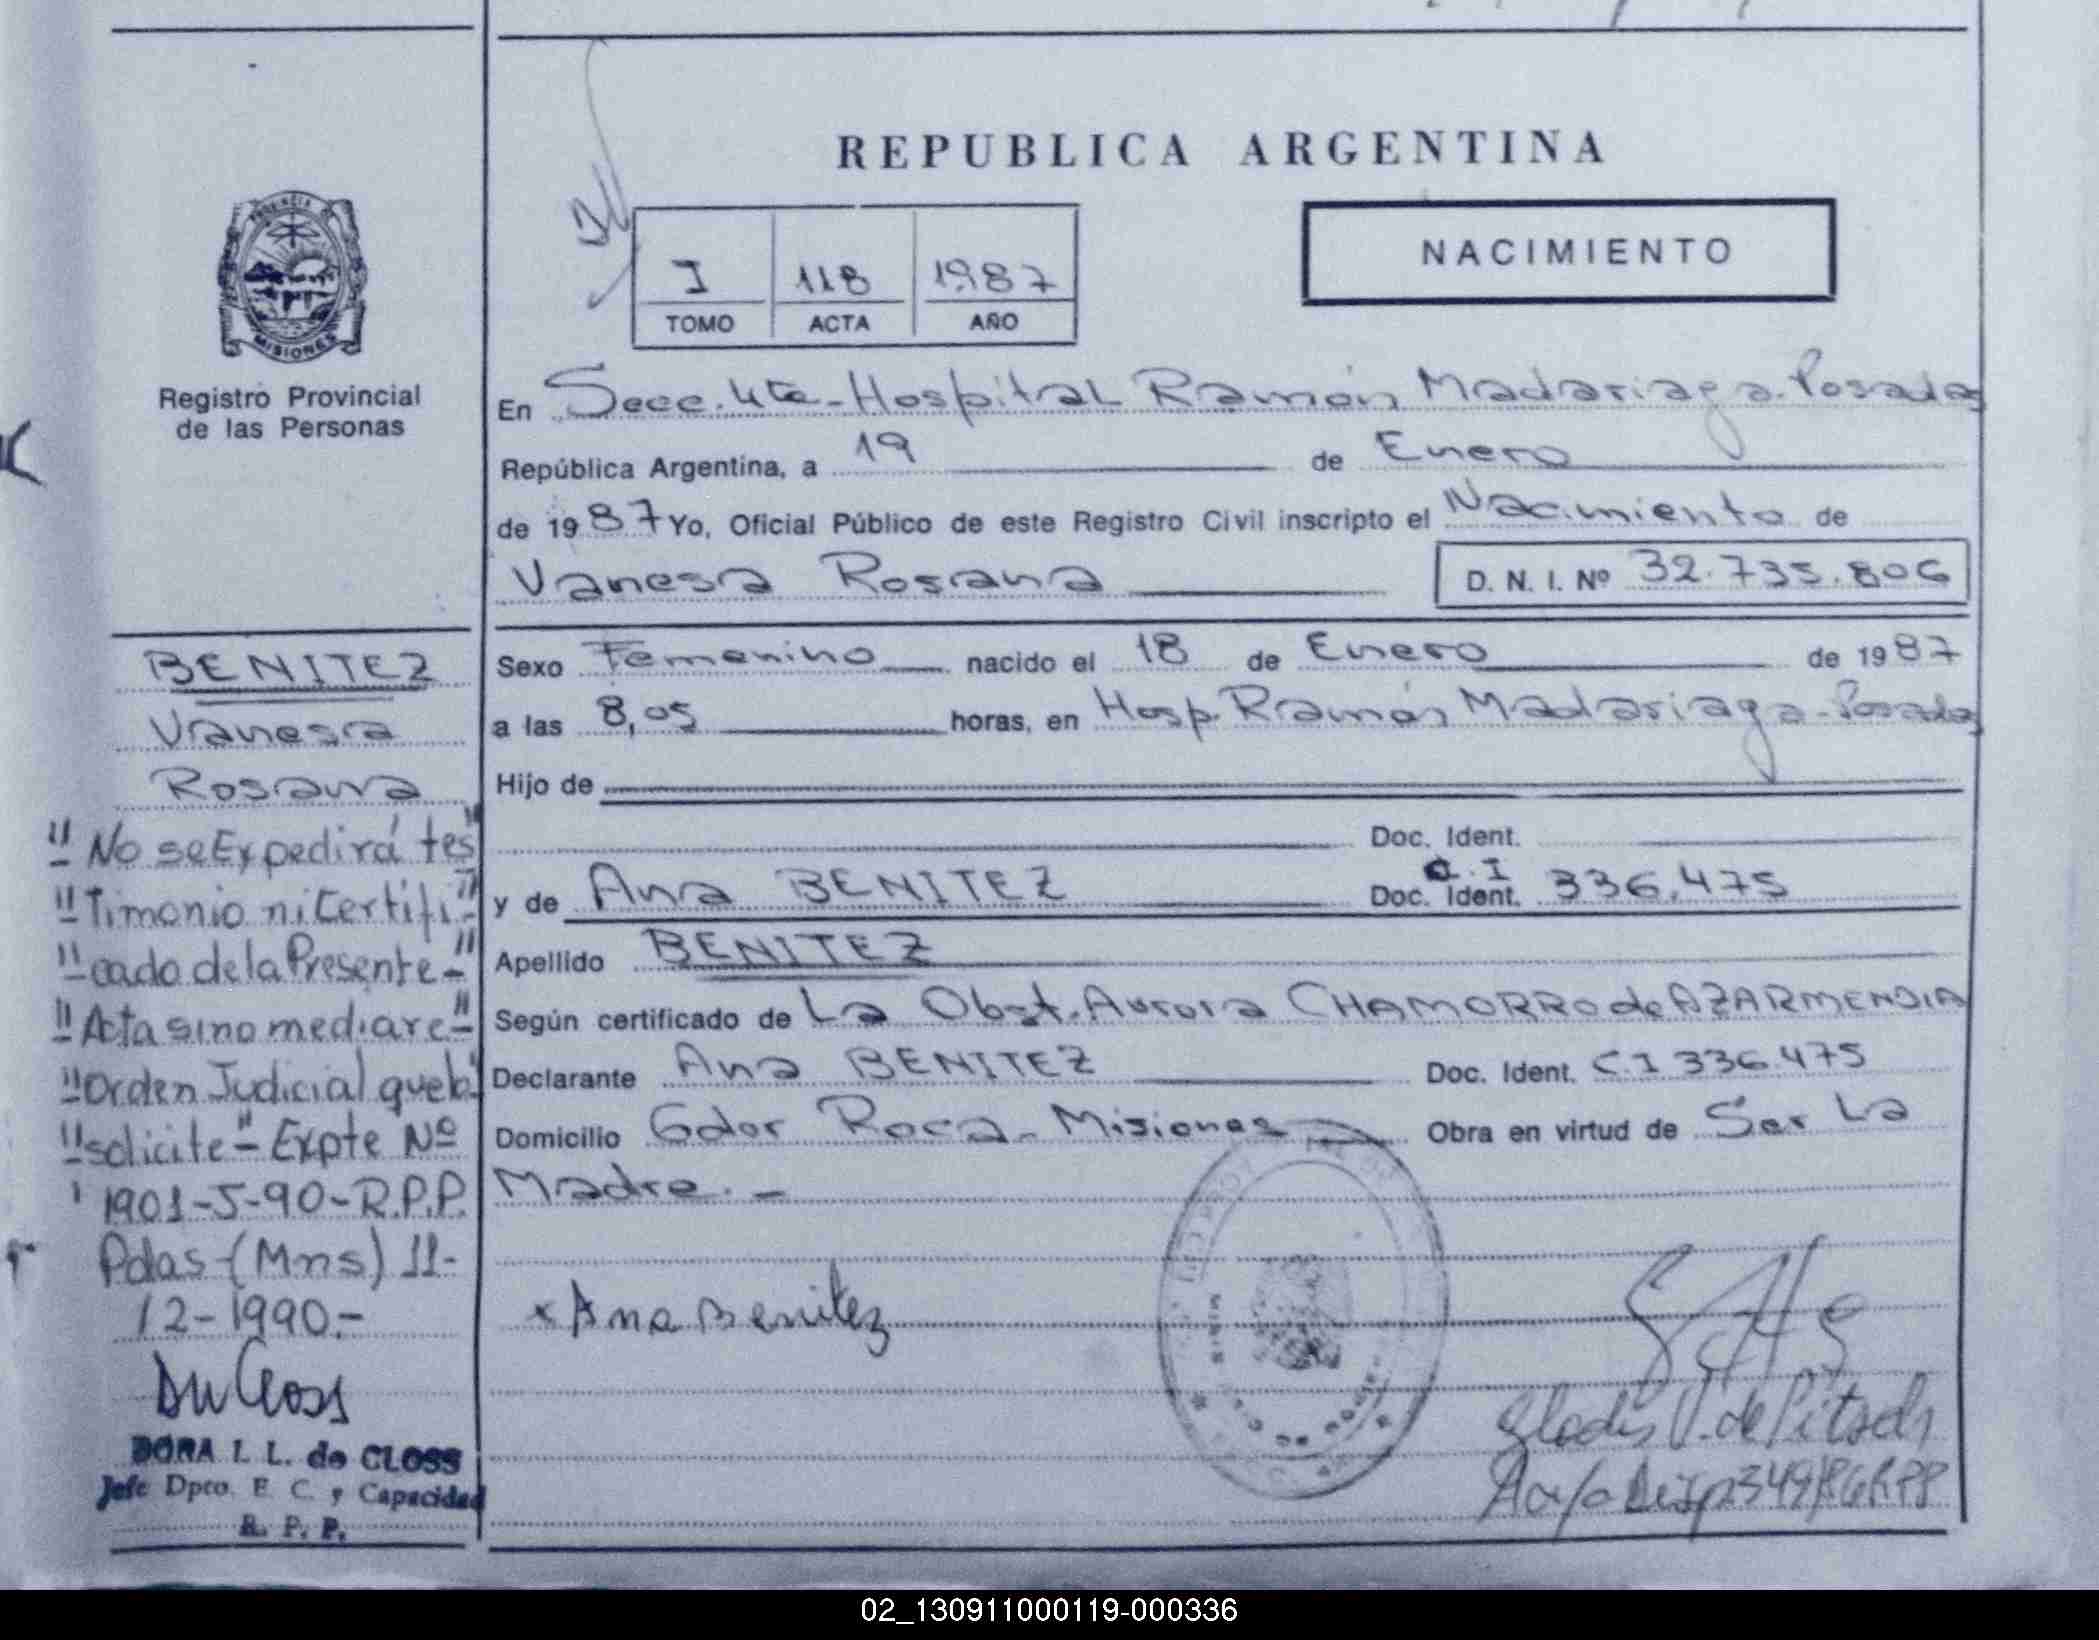 REPUBLICA ARGENTINA
NACIMIENTO
I 118 1987
TOMO ACTA AÑO
PROVINCIA DE
MISIONES
Registro Provincial
de las Personas
En Secc. 4ta - Hospital Ramón Madariaga - Posadas
República Argentina, a 19 de Enero
de 1987 Yo, Oficial Público de este Registro Civil inscripto el Nacimiento de
Vanesa Rosana D. N. I. Nº 32.735.806
Sexo Femenino nacido el 18 de Enero de 1987
a las 8,05 horas, en Hosp. Ramón Madariaga - Posadas
Hijo de
Doc. Ident.
y de Ana BENITEZ Doc. Ident. C.I 336.475
Apellido BENITEZ
Según certificado de La Obst. Aurora CHAMORRO de AZARMENDIA
Declarante Ana BENITEZ Doc. Ident. C.I 336.475
Domicilio Gdor Roca - Misiones Obra en virtud de Ser La
Madre. -
x Ana Benitez
Gladis V. de Pitsch
BENITEZ
Vanesa
Rosana
"No se Expedirá tes"
"Timonio ni Certifi-"
"cado de la Presente-"
"Acta sino mediare-"
"Orden Judicial que lo"
"solicite"- Expte Nº
1901-5-90-R.P.P.
Pdas-(Mns) 11-
12-1990.-
DORA I. L. de CLOSS
Jefe Dpto. E. C. y Capacidad
R. P. P.
02_130911000119-000336